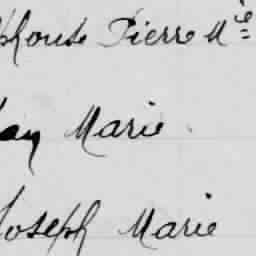 phonse Pierre Mie
an Marie
Joseph Marie